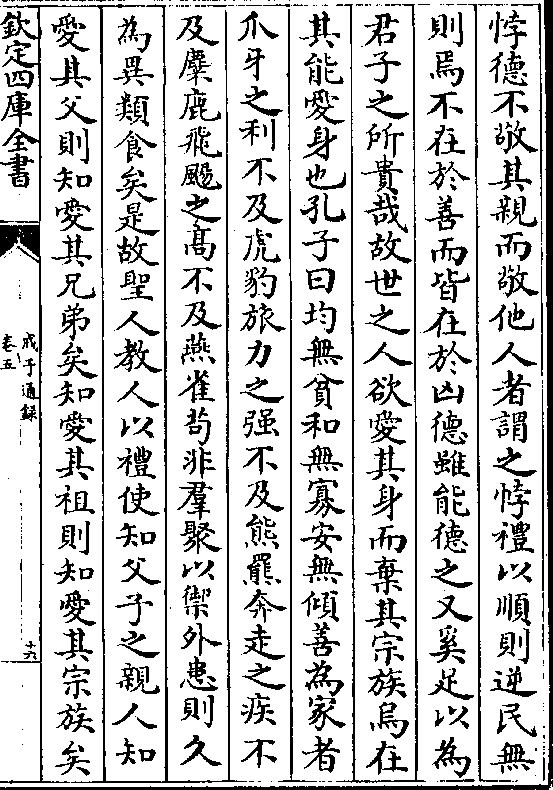 悖德不敬其親而敬他人者謂之悖禮以順則逆民無
則焉不在於善而皆在於凶德雖能徳之又奚足以為
君子之所貴哉故世之人欲愛其身而棄其宗族烏在
其能愛身也孔子曰均無貧和無寡安無傾善為家者
爪牙之利不及虎豹旅力之强不及熊羆奔走之疾不
及麋鹿飛颺之髙不及燕雀茍非羣聚以禦外患則久
為異類食矣是故聖人教人以禮使知父子之親人知
愛其父則知愛其兄弟矣知愛其祖則知愛其宗族矣
欽定四庫全書
戒子通録
卷五
十六